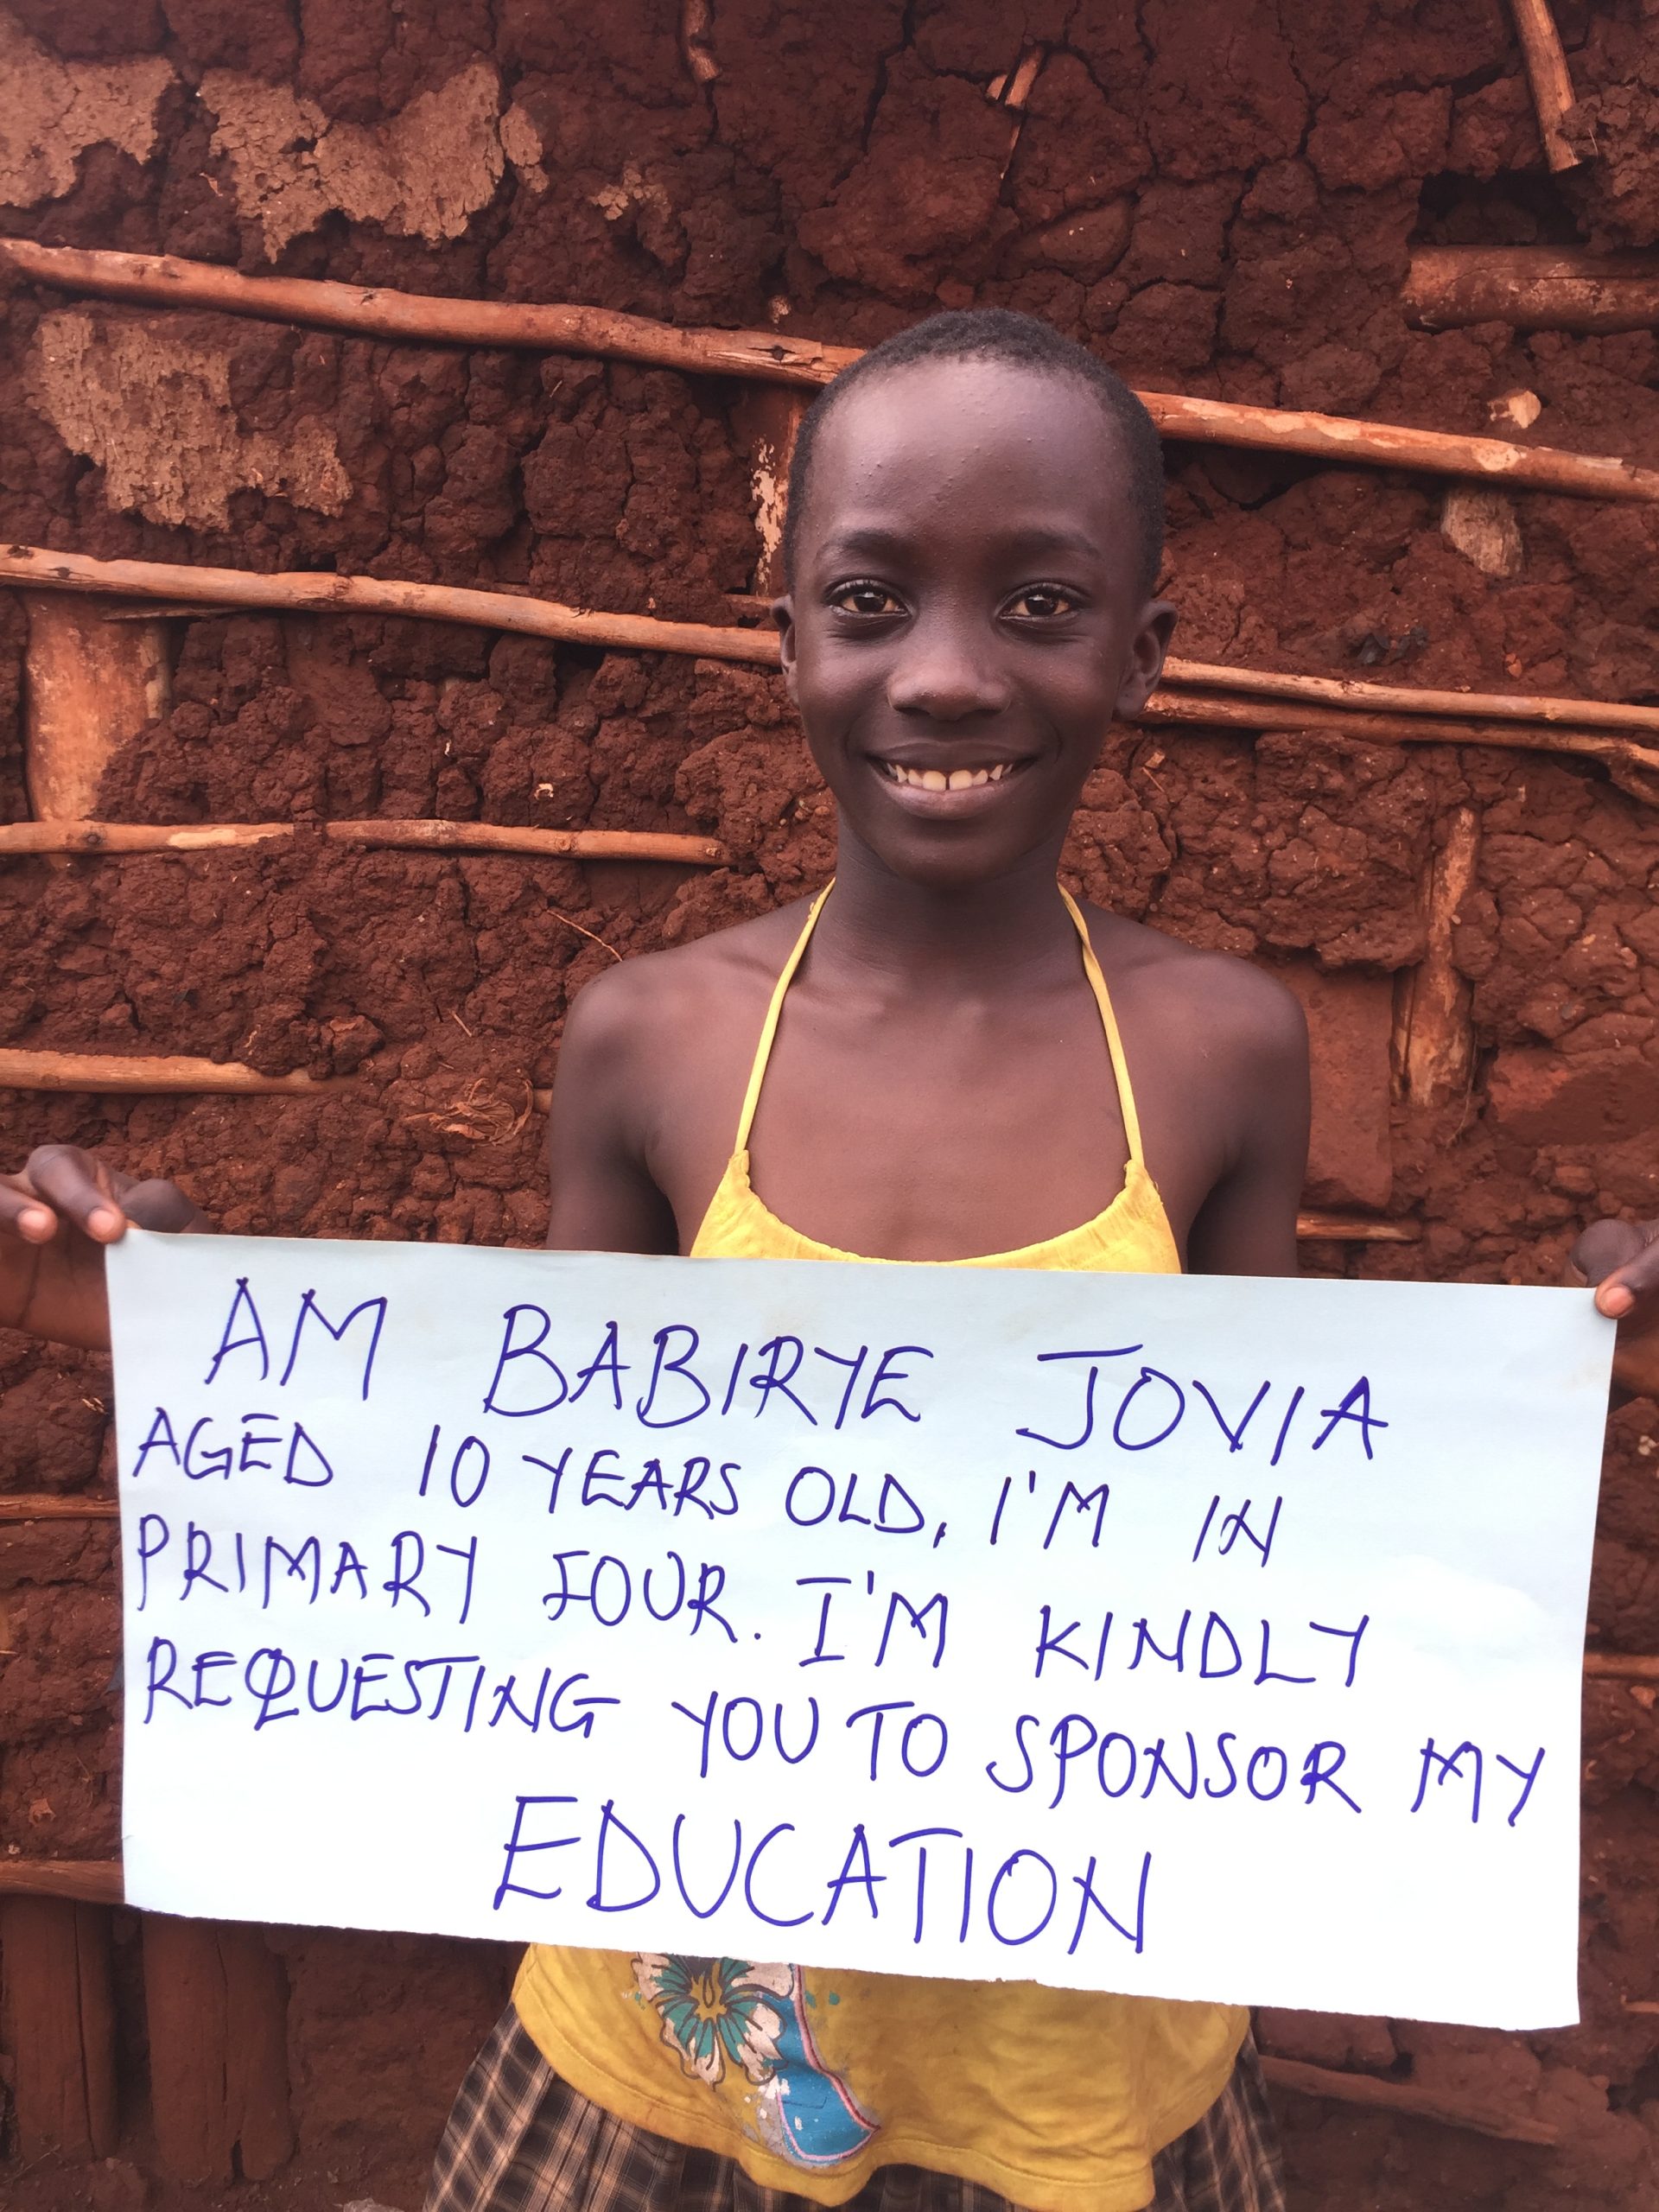 AM BABIRYE JOVIA
AGED 10 YEARS OLD, I'M IN
PRIMARY FOUR. I'M KINDLY
REQUESTING YOU TO SPONSOR MY
EDUCATION